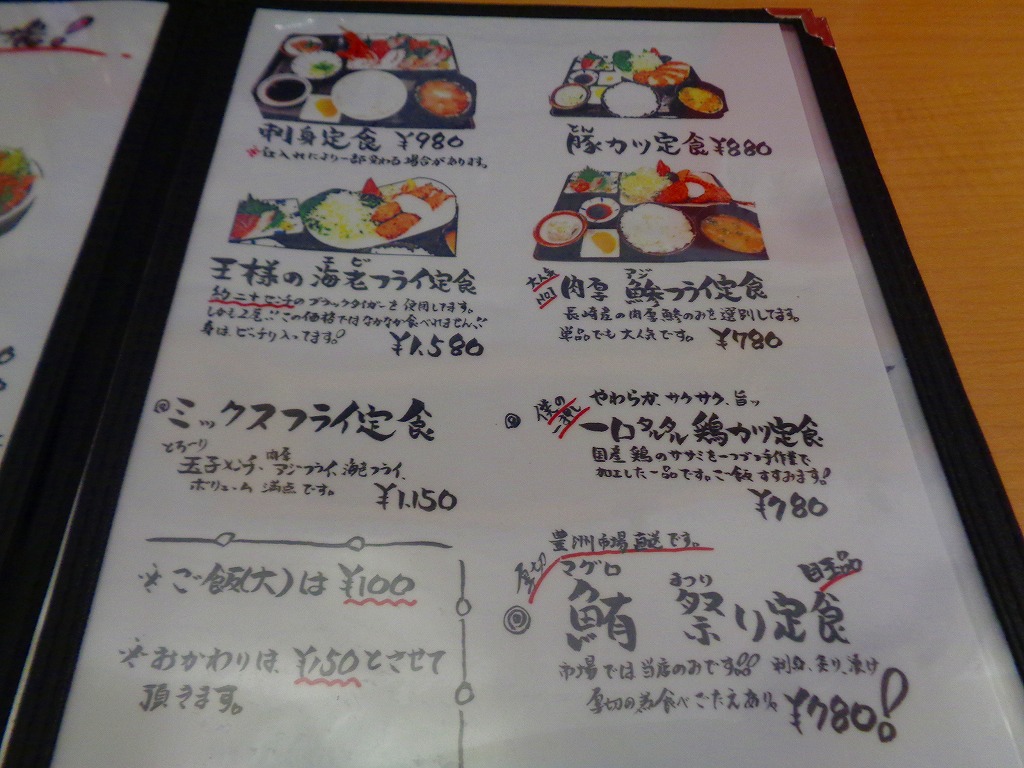 刺身定食 ¥980
※仕入れにより一部変わる場合があります。
とん
豚カツ定食 ¥880
エビ
王様の海老フライ定食
約二十センチのブラックタイガーを使用してます。
しかも2尾!!この価格ではなかなか食べれません!!
身は、ビッチリ入ってます!
¥1,580
大人気
No1
アジ
肉厚 鯵フライ定食
長崎産の肉厚鯵のみを選別してます。
単品でも大人気です。
¥780
◎ミックスフライ定食
とろーり
肉厚
玉子メンチ、アジフライ、海老フライ、
ボリューム満点です。
¥1,150
◎
僕の
一押し
やわらか、サクサク、旨ッ
一口タルタル鶏カツ定食
国産鶏のササミを一つづつ手作業で
加工した一品です。ご飯すすみます!
¥780
※ご飯(大)は ¥100
※おかわりは、¥150とさせて
頂きます。
豊洲市場直送です。
厚切
マグロ
まつり
目玉品
◎ 鮪 祭り定食
市場では当店のみです!! 刺身、炙り、漬け
厚切の為食べごたえあり。
¥780!